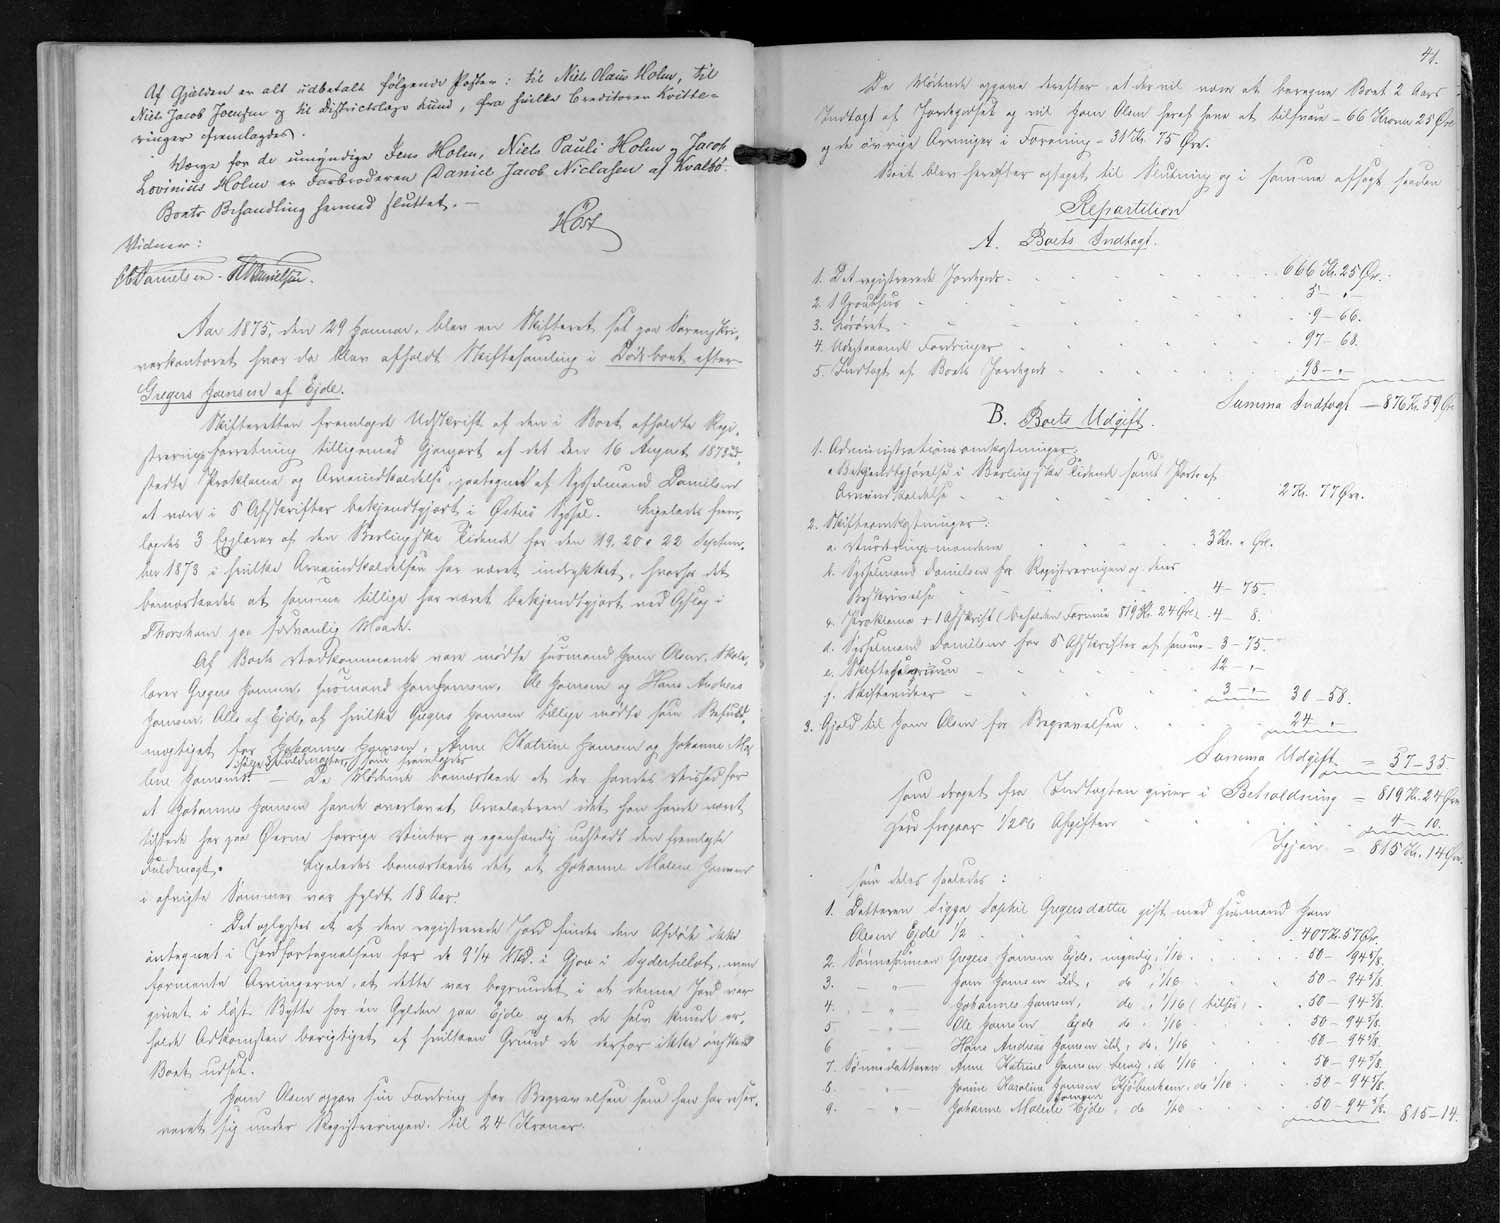 Af Gjælden er alt udbetalt følgende Poster: til Niels Olaus Holm, til
Niels Jacob Joensen og til Districtslæge Lund, fra hvilke Creditorer Kvitte-
ringer fremlagdes.
Værge for de umyndige Jens Holm, Niels Pauli Holm og Jacob
Lovinius Holm er Farbroderen Daniel Jacob Niclasen af Kvalbø.
Boets Behandling hermed sluttet. —
Høst
Vidner:
Danielsen. Danielsen.
Aar 1875, den 29 Januar, blev en Skifteret sat paa Sorenskri-
verkontoret hvor da blev afholdt Skiftesamling i Dødsboet efter
Gregers Hansen af Ejde.
Skifteretten fremlagde Udskrift af den i Boet afholdte Regi-
streringsforretning tilligemed Gjenpart af det den 16 August 1873 ud-
stedte Proklama og Arveindkaldelse, paategnet af Sysselmand Danielsen
at være i 5 Afskrifter bekjendtgjort i Østerø Syssel. Ligeledes frem-
lagdes 3 Explarer af den Berlingske Tidende for den 19. 20 & 22 Septem-
ber 1873 i hvilke Arveindkaldelsen har været indrykket, hvorhos det
bemærkedes at samme tillige har været bekjendtgjort ved Opslag i
Thorshavn paa sædvanlig Maade.
Af Boets Vedkommende vare mødte Husmand Hans Olsen, Skole-
lærer Gregers Hansen, Husmand Hans Hansen, Ole Hansen og Hans Andreas
Hansen. Alle af Ejde, af hvilke Gregers Hansen tillige mødte som Befuld-
mægtiget for Johannes Hansen, Anne Katrine Hansen og Johanne Ma-
lene Hansen Fuldmagter, som fremlagdes
— De Mødende bemærkede at der havdes Vished for
at Johannes Hansen havde overlevet Arveladeren idet han havde været
tilstede her paa Øerne forrige Vinter og egenhændig udstedt den fremlagte
Fuldmagt. Ligeledes bemærkedes det at Johanne Malene Hansen
i afvigte Sommer var fyldt 18 Aar.
Det oplystes at af den registrerede Jord findes den Afdøde ikke
antegnet i Jordfortegnelsen for de 9 1/4 i Gjov i Sydertillæt, men
formente Arvingerne, at dette var begrundet i at denne Jord var
givet i løst Bytte for én Gylden paa Ejde og at de selv kunde er-
holde Adkomsten berigtiget af hvilken Grund de derfor ikke ønskede
Boet udsat.
Hans Olsen opgav sin Fordring for Begravelsen som han har reser-
veret sig under Registreringen til 24 Kroner.
41.
De Mødende opgave derefter, at der vil være at beregne Boet 2 Aars
Indtægt af Jordegodset og vil Hans Olsen heraf have at tilsvare — 66 Kroner 25 Øre
og de øvrige Arvinger i Forening — 31 Kr. 75 Øre.
Boet blev herefter optaget til Slutning og i samme afsagt saadan
Repartition
A. Boets Indtægt.
1. Det registrerede Jordegods 666 Kr. 25 Øre.
2. 1 Grouthus 5 — „ —
3. Løsøret 9 — 66.
4. Udestaaende Fordringer 97 — 68.
5. Indtægt af Boets Jordegods 98 — „ —
Summa Indtægt — 876 Kr. 59 Øre
B. Boets Udgift.
1. Administrationsomkostninger.
Bekjendtgjørelse i Berlingske Tidende samt Porto af
Arveindkaldelse 2 Kr. 77 Øre.
2. Skifteomkostninger:
a. Vurderingsmændene 3 Kr. „ Øre.
b. Sysselmand Danielsen for Registreringen og dens
Beskrivelse 4 — 75.
c. Proklama + 1 Afskrift (beholden Formue 819 Kr. 24 Øre) 4 — 8.
d. Sysselmand Danielsen for 5 Afskrifter af samme — 3 — 75.
e. Skiftesalærium 12 — „ —
f. Skiftevidner 3 — „ — 30 — 58.
3. Gjæld til Hans Olsen for Begravelsen 24 „
Summa Udgift = 57 — 35.
som draget fra Indtægten giver i Beholdning = 819 Kr. 24 Øre
Herfra gaar 1/2 pCt Afgiften 4 — 10.
Igjen = 815 Kr. 14 Øre.
som deles saaledes:
1. Datteren Sigga Sophie Gregersdatter gift med Husmand Hans
Olsen Ejde 1/2 407 Kr. 57 Øre.
2. Sønnesønnen Gregers Hansen Ejde, myndig, 1/16 50 — 94 5/8.
3. — „ — Hans Hansen ibd., do, 1/16 50 — 94 5/8.
4. — „ — Johannes Hansen, do, 1/16 50 — 94 5/8.
5 — „ — Ole Hansen Ejde do, 1/16 50 — 94 5/8.
6 — „ — Hans Andreas Hansen ibd., do, 1/16 50 — 94 5/8.
7. Sønnedatteren Anne Katrine Hansen, do 1/16 50 — 94 5/8.
8. — „ — Karoline Hansen Kjøbenhavn, do 1/16 50 — 94 5/8.
9. — „ — Johanne Malene Hansen Ejde, do 1/16 50 — 94 5/8. 815 — 14.